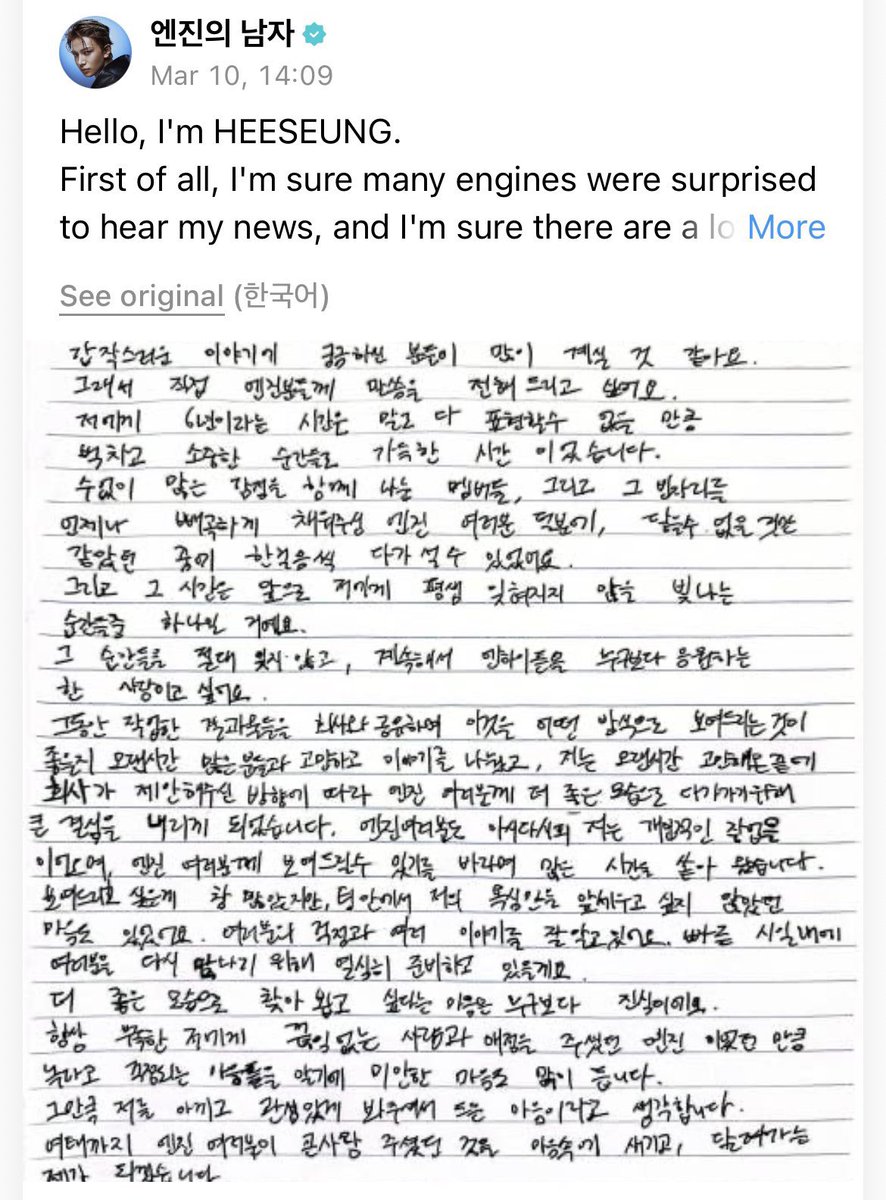 엔진의 남자
Mar 10, 14:09
Hello, I'm HEESEUNG.
First of all, I'm sure many engines were surprised
to hear my news, and I'm sure there are a lo More
See original (한국어)
갑작스러운 이야기에 궁금하신 분들이 많이 계실 것 같아요.
그래서 직접 엔진분들께 말씀을 전해 드리고 싶어요.
저에게 6년이라는 시간은 말로 다 표현할수 없을 만큼
벅차고 소중한 순간들로 가득한 시간 이었습니다.
수없이 많은 감정을 함께 나눈 멤버들, 그리고 그 빈자리를
언제나 빼곡하게 채워주신 엔진 여러분 덕분에, 닿을수 없을 것만
같았던 꿈에 한걸음씩 다가 설 수 있었어요.
그리고 그 시간은 앞으로 저에게 평생 잊혀지지 않을 빛나는
순간들중 하나일 거예요.
그 순간들을 절대 잊지 않고, 계속해서 엔하이픈을 누구보다 응원하는
한 사람이고 싶어요.
그동안 작업한 결과물들을 회사와 공유하며 이것을 어떤 방식으로 보여드리는 것이
좋을지 오랜시간 많은 분들과 고민하고 이야기를 나눴고, 저는 오랜시간 고민해온 끝에
회사가 제안해주신 방향에 따라 엔진 여러분께 더 좋은 모습으로 다가가기위해
큰 결심을 내리게 되었습니다. 엔진여러분도 아시다시피 저는 개인적인 작업을
이어오며, 엔진 여러분께 보여드릴수 있기를 바라며 많은 시간을 쏟아 왔습니다.
보여드리고 싶은게 참 많았지만, 팀 안에서 저의 욕심만을 앞세우고 싶지 않았던
마음도 있었어요. 여러분의 걱정과 여러 이야기를 잘 알고 있어요. 빠른 시일내에
여러분을 다시 만나기 위해 열심히 준비하고 있을게요.
더 좋은 모습으로 찾아 뵙고 싶다는 마음은 누구보다 진심이에요.
항상 부족한 저에게 끊임 없는 사랑과 애정을 주셨던 엔진 이었던 만큼
놀라고 걱정되는 마음들을 알기에 미안한 마음도 많이 듭니다.
그만큼 저를 아끼고 관심있게 봐주셔서 드는 마음이라고 생각합니다.
여태까지 엔진 여러분이 큰사랑 주셨던 것을 마음속에 새기고, 달려가는
제가 되겠습니다